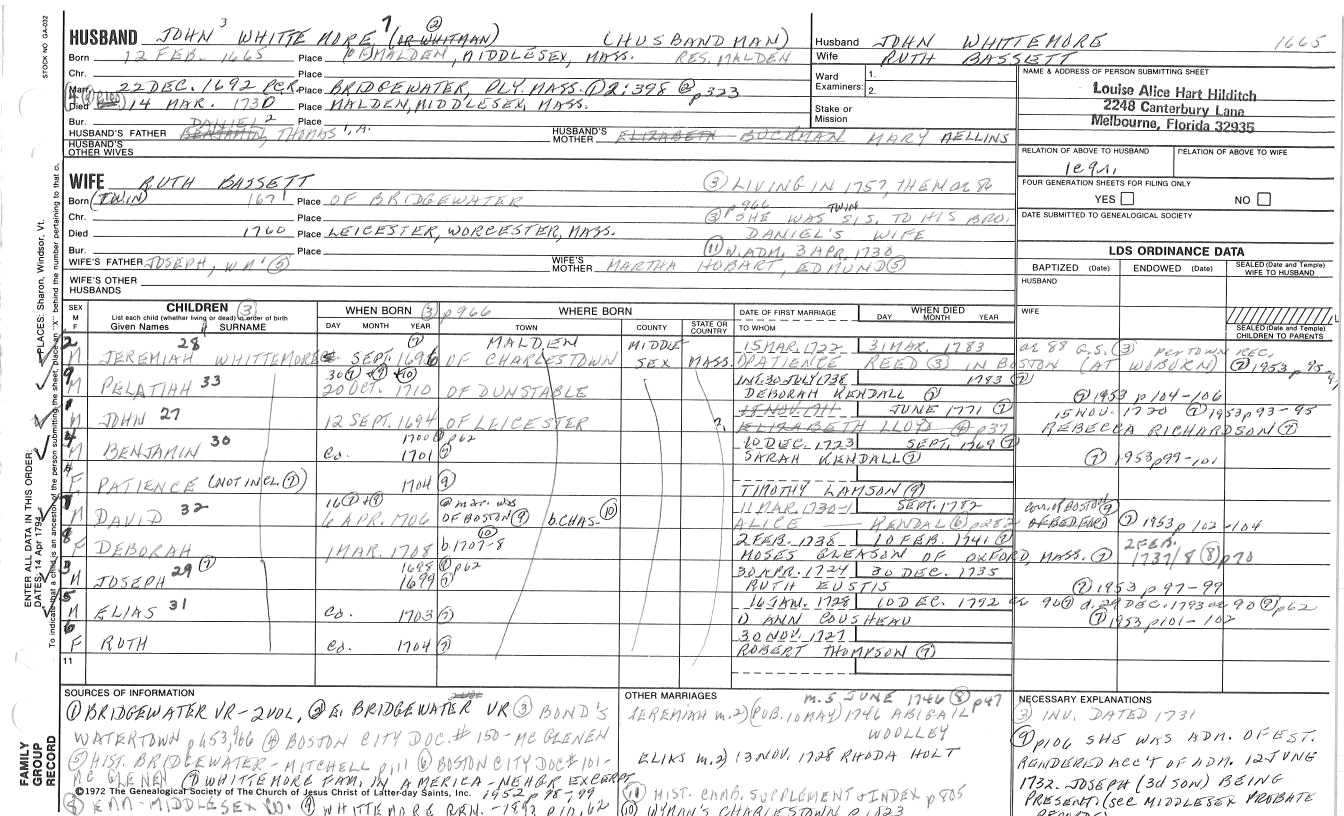 STOCK NO. GA-032
HUSBAND JOHN 3 WHITTEMORE 7 (OR WHITMAN) ② (HUSBANDMAN)
Born 12 FEB. 1665 Place OF MALDEN, MIDDLESEX, MASS. RES. MALDEN
Chr. Place
Marr. 22 DEC. 1692 PCR. Place BRIDGEWATER, PLY. MASS. ① 2:398 ② p323
Died 14 MAR. 1730 Place MALDEN, MIDDLESEX, MASS.
Bur. Place
HUSBAND'S FATHER BENJAMIN, DANIEL 2 THOMAS 1, A. HUSBAND'S MOTHER ELIZABETH BUCKMAN MARY MELLINS
HUSBAND'S OTHER WIVES
Husband JOHN WHITTEMORE 1665
Wife RUTH BASSETT
Ward Examiners: 1.
2.
Stake or Mission
NAME & ADDRESS OF PERSON SUBMITTING SHEET
Louise Alice Hart Hilditch
2248 Canterbury Lane
Melbourne, Florida 32935
RELATION OF ABOVE TO HUSBAND RELATION OF ABOVE TO WIFE
FOUR GENERATION SHEETS FOR FILING ONLY
YES NO
DATE SUBMITTED TO GENEALOGICAL SOCIETY
WIFE RUTH BASSETT ③ LIVING IN 1757, THEN AE 86
Born (TWIN) 1671 Place OF BRIDGEWATER
Chr. Place ③ p966 SHE WAS TWIN SIS. TO HIS BRO.
Died 1760 Place LEICESTER, WORCESTER, MASS. DANIEL'S WIFE
Bur. Place ⑪ W. ADM. 3 APR. 1730
WIFE'S FATHER JOSEPH, WM' ⑤ WIFE'S MOTHER MARTHA HOBART, EDMUND ⑤
WIFE'S OTHER HUSBANDS
LDS ORDINANCE DATA
BAPTIZED (Date) ENDOWED (Date) SEALED (Date and Temple) WIFE TO HUSBAND
HUSBAND
WIFE
SEALED (Date and Temple) CHILDREN TO PARENTS
SEX M F CHILDREN ③ List each child (whether living or dead) in order of birth Given Names SURNAME
WHEN BORN ③ p966 DAY MONTH YEAR WHERE BORN TOWN COUNTY STATE OR COUNTRY
DATE OF FIRST MARRIAGE TO WHOM WHEN DIED DAY MONTH YEAR
2 M JEREMIAH 28 WHITTEMORE SEPT. 1696 ⑦ MALDEN OF CHARLESTOWN MIDDLESEX MASS. 15 MAR. 1722 31 MAR. 1783 AE 88 G.S. ③ PER TOWN REC.
PATIENCE REED ③ IN BOSTON (AT WOBURN) ⑦ 1953 p 95-97
9 M PELATIAH 33 30 ⑦ ⑨ ⑩ 20 OCT. 1710 OF DUNSTABLE INT. 30 JULY 1738 1783 ⑦
DEBORAH KENDALL ⑦ ⑦ 1953 p 104-106
1 M JOHN 27 12 SEPT. 1694 OF LEICESTER 15 NOV. JUNE 1771 ⑦ 15 NOV. 1720 ⑦ 1953 p 93-95
ELIZABETH LLOYD ④ p37 REBECCA RICHARDSON ⑦
4 M BENJAMIN 30 CA. 1700 p62 1701 ⑦ 10 DEC. 1723 SEPT. 1769 ⑦
SARAH KENDALL ⑦ ⑦ 1953 p99-101
F PATIENCE (NOT IN CL. ⑦) 1704 ⑨
TIMOTHY LAMSON ⑨
7 M DAVID 32 16 ⑦ + ⑨ 6 APR. 1706 @ MAR. WAS OF BOSTON ⑨ b. CHAS. ⑩ 11 MAR. 1730-1 SEPT. 1782
ALICE KENDAL ⑥ p282 ⑦ 1953 p 102-104
8 F DEBORAH 1 MAR. 1708 b. 1707-8 ⑩ 2 FEB. 1738 10 FEB. 1741 ⑦ 2 FEB. 1737/8 ⑧ p70
MOSES GLEASON OF OXFORD, MASS. ⑦
3 M JOSEPH 29 ⑦ 1698 p62 1699 ⑦ 30 APR. 1724 30 DEC. 1735
RUTH EUSTIS ⑦ 1953 p 97-99
5 M ELIAS 31 CA. 1703 ⑦ 16 JAN. 1728 10 DEC. 1792 AE 90 ⑦ d. 29 DEC. 1793 AE 90 ⑨ p62
① ANN COUSHEAU ⑦ 1953 p101-102
6 F RUTH CA. 1704 ⑦ 30 NOV. 1727
ROBERT THOMPSON ⑦
11
SOURCES OF INFORMATION
① BRIDGEWATER VR - 2 VOL, ② E. BRIDGEWATER VR ③ BOND'S
WATERTOWN p653,966 ④ BOSTON CITY DOC. # 150 - MC GLENEN
⑤ HIST. BRIDGEWATER - MITCHELL p111 ⑥ BOSTON CITY DOC # 101-
MC GLENEN ⑦ WHITTEMORE FAM. IN AMERICA - NEHGR EXCERPT
©1972 The Genealogical Society of The Church of Jesus Christ of Latter-day Saints, Inc. 1952 p 98-99
⑨ WHITTEMORE p10,62
OTHER MARRIAGES m. 5 JUNE 1746 ⑧ p47
JEREMIAH m. 2) (PUB. 10 MAY) 1746 ABIGAIL
WOOLLEY
ELIAS m. 2) 13 NOV. 1728 RHODA HOLT
⑪ HIST. CAMB. SUPPLEMENT & INDEX p805
⑩ WYMAN'S CHARLESTOWN p 1023
NECESSARY EXPLANATIONS
③ INV. DATED 1731
⑨ p106 SHE WAS ADM. OF EST.
RENDERED ACC'T OF ADM. 12 JUNE
1732. JOSEPH (3d SON) BEING
PRESENT. (SEE MIDDLESEX PROBATE
ENTER ALL DATA IN THIS ORDER:
DATES: 14 Apr 1794 PLACES: Sharon, Windsor, Vt.
FAMILY GROUP RECORD